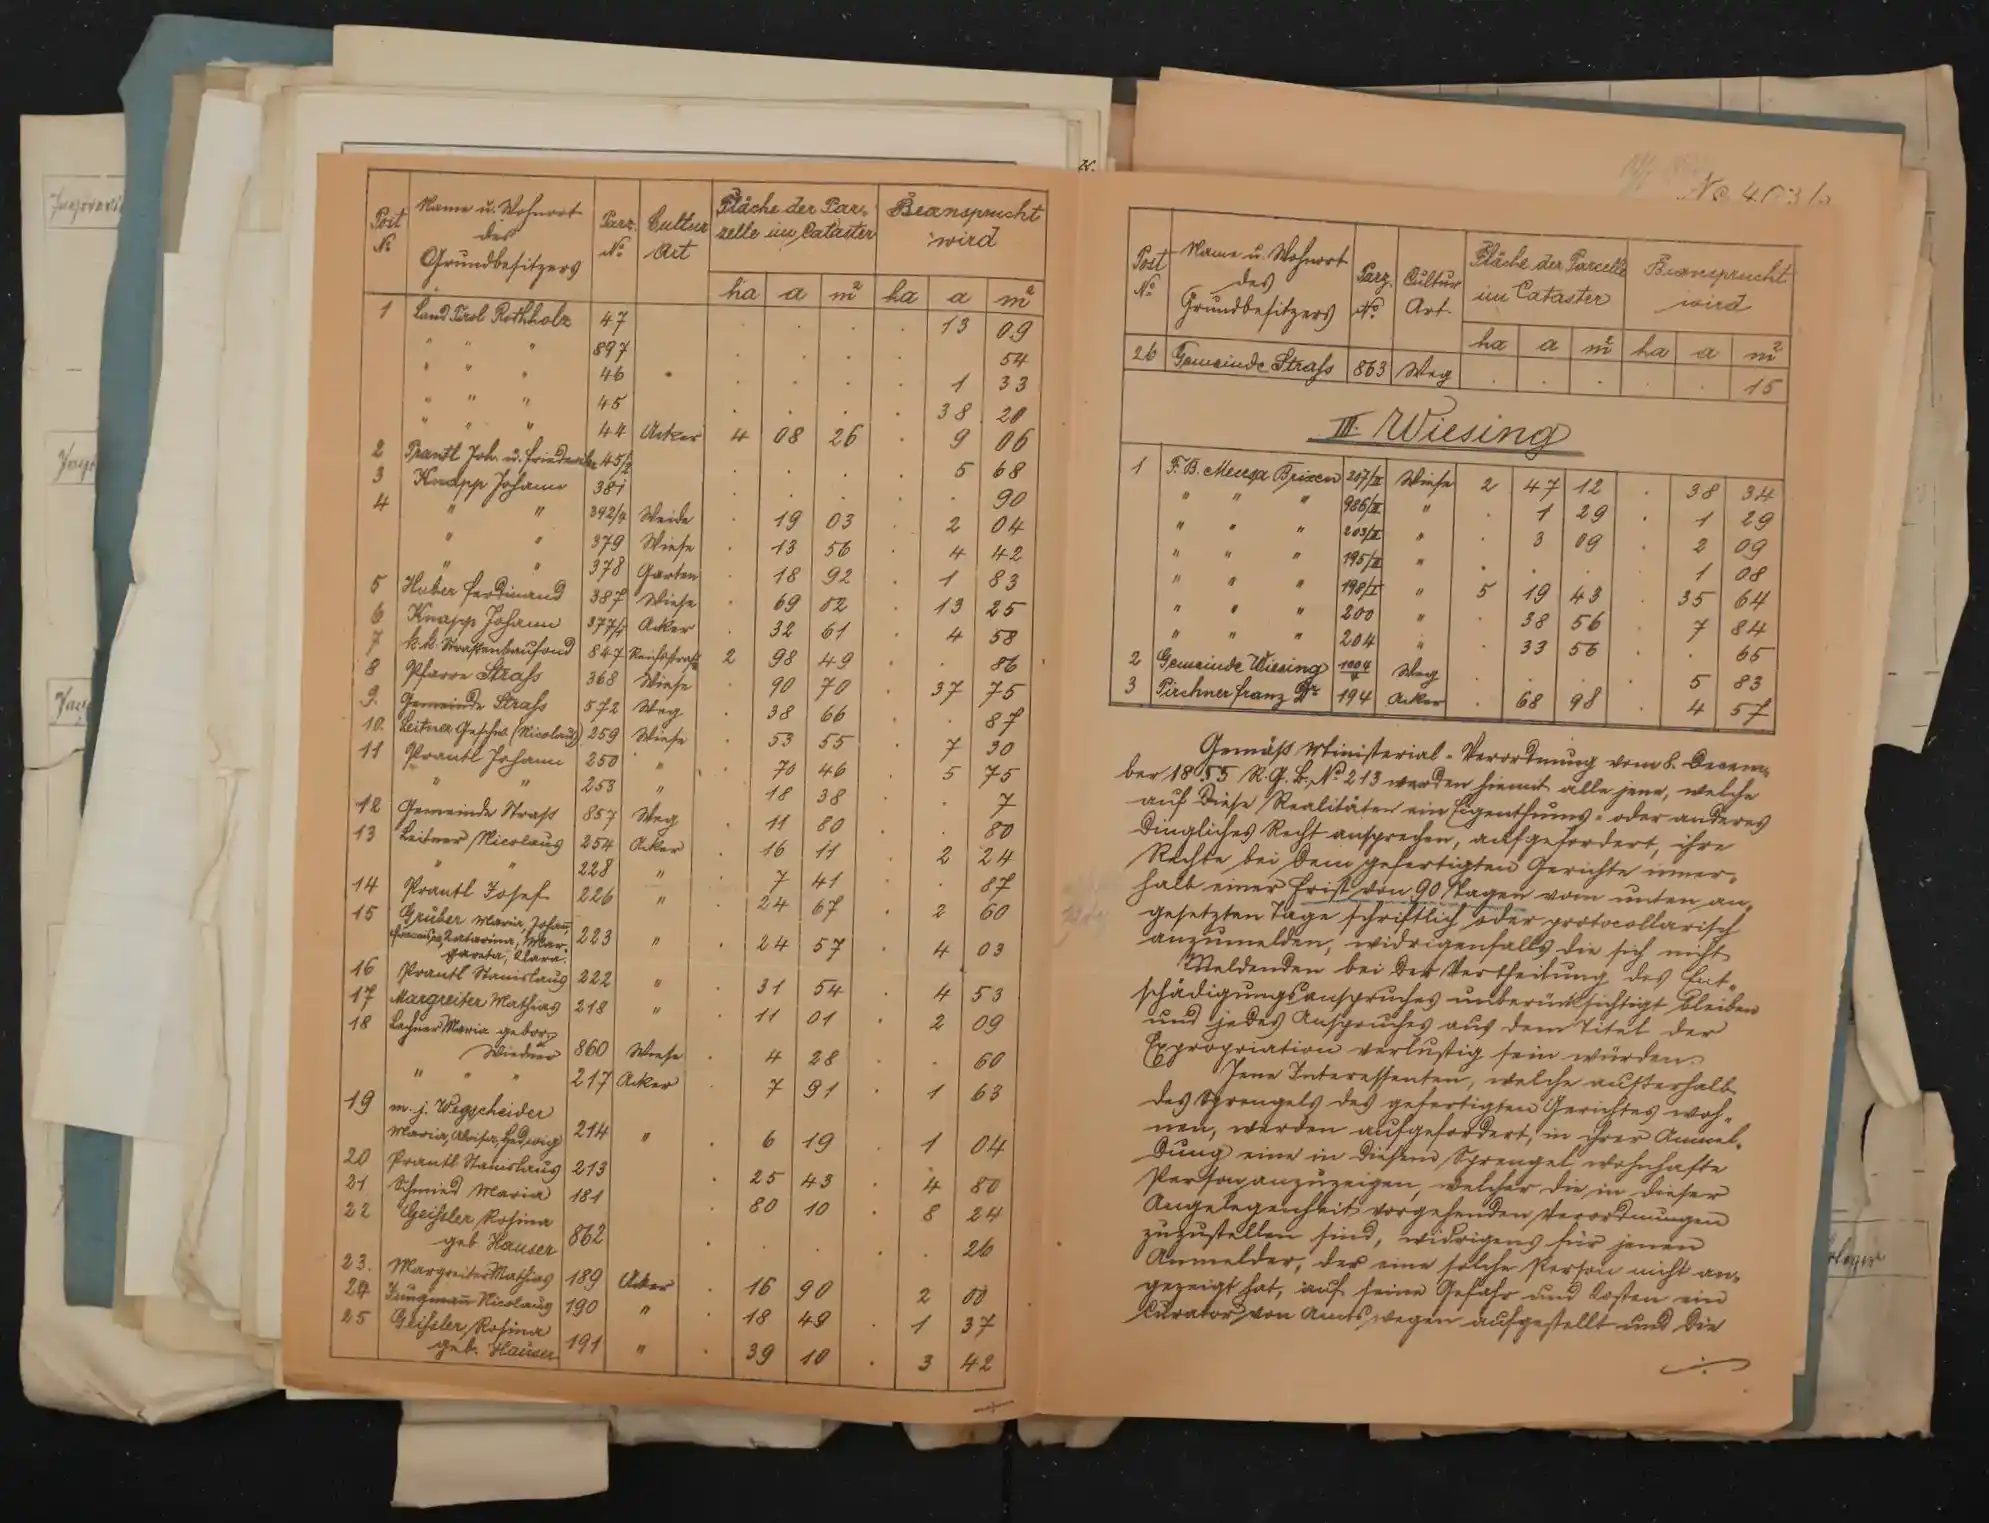 Post No | Name u. Wohnort des Grundbesitzers | Parz. No | Cultur Art | Fläche der Parzelle im Cataster | Beansprucht wird
ha | a | m² | ha | a | m²
1 | Land Tirol Rothholz | 47 | | . | . | . | . | 13 | 09
" " " | 897 | | . | . | . | . | | 54
" " " | 46 | | . | . | . | . | 1 | 33
" " " | 45 | | . | . | . | . | 38 | 20
" " " | 44 | Acker | 4 | 08 | 26 | . | 9 | 06
2 | Prantl Joh. u. Friederike | 45/2 | | . | . | . | . | 5 | 68
3 | Knapp Johann | 381 | | . | . | . | . | . | 90
4 | " " | 392/4 | Weide | . | 19 | 03 | . | 2 | 04
" " | 379 | Wiese | . | 13 | 56 | . | 4 | 42
" " | 378 | Garten | . | 18 | 92 | . | 1 | 83
5 | Huber Ferdinand | 387 | Wiese | . | 69 | 02 | . | 13 | 25
6 | Knapp Johann | 377/1 | Acker | . | 32 | 61 | . | 4 | 58
7 | k. k. Straßenbaufond | 847 | Reichsstraße | 2 | 98 | 49 | . | . | 86
8 | Pfarre Strass | 368 | Wiese | . | 90 | 70 | . | 37 | 75
9. | Gemeinde Strass | 572 | Weg | . | 38 | 66 | . | . | 87
10. | Leitner Geschw. (Nicolaus) | 259 | Wiese | . | 53 | 55 | . | 7 | 30
11 | Prantl Johann | 250 | " | . | 70 | 46 | . | 5 | 75
" " | 253 | " | . | 18 | 38 | . | . | 7
12 | Gemeinde Strass | 857 | Weg | . | 11 | 80 | . | . | 80
13 | Leitner Nicolaus | 254 | Acker | . | 16 | 11 | . | 2 | 24
" " | 228 | " | . | 7 | 41 | . | . | 87
14 | Prantl Josef | 226 | " | . | 24 | 67 | . | 2 | 60
15 | Gruber Maria, Johann,
Franziska, Katarina, Mar- | 223 | " | . | 24 | 57 | . | 4 | 03
gareta, Klara.
16 | Prantl Stanislaus | 222 | " | . | 31 | 54 | . | 4 | 53
17 | Margreiter Mathias | 218 | " | . | 11 | 01 | . | 2 | 09
18 | Lechner Maria gebor.
Wiedner | 860 | Wiese | . | 4 | 28 | . | . | 60
" " " | 217 | Acker | . | 7 | 91 | . | 1 | 63
19 | m. j. Wegscheider
Maria, Aloisia, Hedwig | 214 | " | . | 6 | 19 | . | 1 | 04
20 | Prantl Stanislaus | 213 | | . | 25 | 43 | . | 4 | 80
21 | Schmied Maria | 181 | | . | 80 | 10 | . | 8 | 24
22 | Geissler Rosina
geb. Hauser | 862 | | . | . | . | . | . | 26
23. | Margreiter Mathias | 189 | Acker | . | 16 | 90 | . | 2 | 00
24 | Jungmann Nicolaus | 190 | " | . | 18 | 49 | . | 1 | 37
25 | Geissler Rosina
geb. Hauser | 191 | " | . | 39 | 10 | . | 3 | 42
Post No | Name u. Wohnort des Grundbesitzers | Parz. No. | Cultur Art. | Fläche der Parcelle im Cataster | Beansprucht wird
ha | a | m² | ha | a | m²
26 | Gemeinde Strass | 863 | Weg | . | . | . | . | . | 15
III. Wiesing
1 | F. B. Mensa Brixen | 207/II | Wiese | 2 | 47 | 12 | . | 38 | 34
" " " | 986/II | " | . | 1 | 29 | . | 1 | 29
" " " | 203/II | " | . | 3 | 09 | . | 2 | 09
" " " | 195/II | " | . | . | . | . | 1 | 08
" " " | 198/I | " | 5 | 19 | 43 | . | 35 | 64
" " " | 200 | " | . | 38 | 56 | . | 7 | 84
" " " | 204 | " | . | 33 | 56 | . | . | 65
2 | Gemeinde Wiesing | 1004/4 | Weg | . | . | . | . | 5 | 83
3 | Pirchner Franz Dr | 194 | Acker | . | 68 | 98 | . | 4 | 57
Gemäss Ministerial-Verordnung vom 8. Decem-
ber 1855 R. G. B. No 213 werden hiemit alle jene, welche
auf diese Realitäten ein Eigenthums- oder anderes
dingliches Recht ansprechen, aufgefordert, ihre
Rechte bei dem gefertigten Gerichte inner-
halb einer Frist von 90 Tagen vom unten an-
gesetzten Tage schriftlich oder protocollarisch
anzumelden, widrigenfalls die sich nicht
Meldenden bei der Vertheilung des Ent-
schädigungsanspruches unberücksichtigt bleiben
und jedes Anspruches aus dem Titel der
Expropriation verlustig sein würden.
Jene Interessenten, welche außerhalb
des Sprengels des gefertigten Gerichtes woh-
nen, werden aufgefordert, in ihrer Anmel-
dung eine in diesem Sprengel wohnhafte
Person anzuzeigen, welcher die in dieser
Angelegenheit vorgehenden Verordnungen
zuzustellen sind, widrigens für jenen
Anmelder, der eine solche Person nicht an-
gezeigt hat, auf seine Gefahr und Kosten ein
Curator von Amts wegen aufgestellt und die